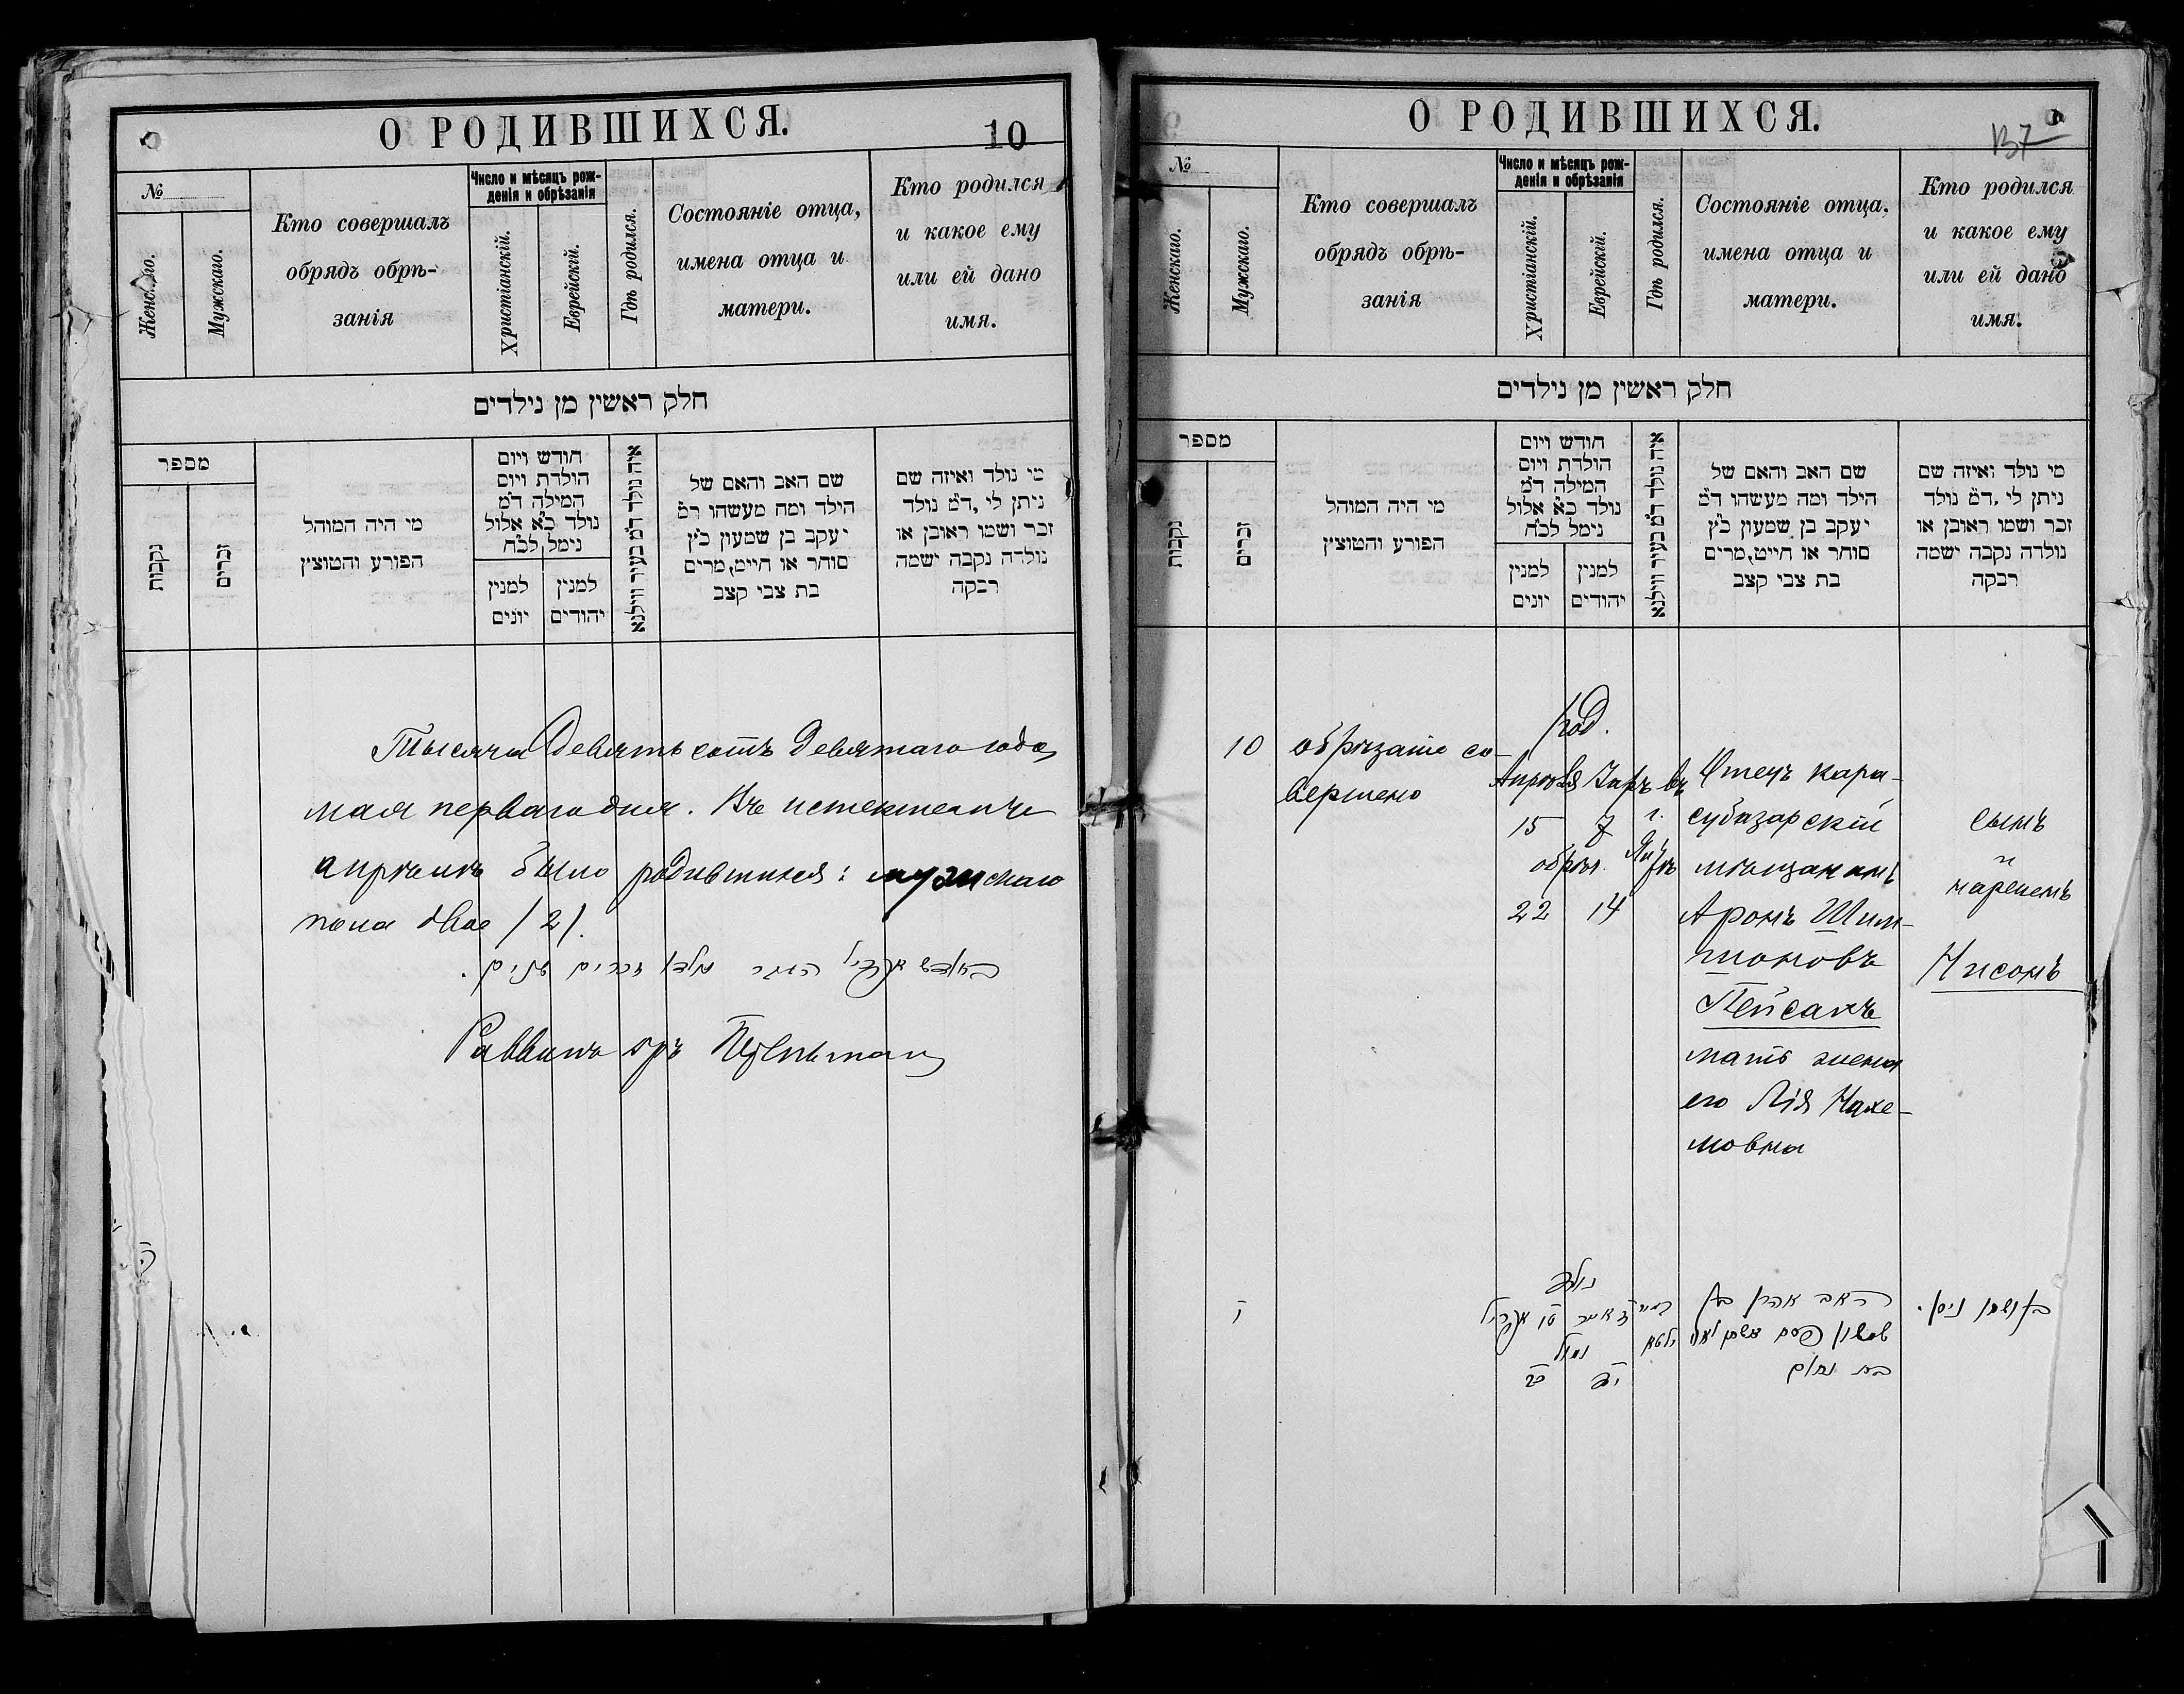 О РОДИВШИХСЯ.
10
№
Женскаго.
Мужскаго.
Кто совершалъ
обрядъ обрѣ-
занія
Число и мѣсяцъ рож-
денія и обрѣзанія
Христіанскій.
Еврейскій.
Гдѣ родился.
Состояніе отца,
имена отца и
матери.
Кто родился
и какое ему
или ей дано
имя.
חלק ראשין מן נילדים
מספר
נקבות
זכרים
מי היה המוהל
הפורע והמוצץ
חודש ויום
הולדת ויום
המילה ד"מ
נולד כ"א אלול
נימל לכ"ח
למנין
יונים
למנין
יהודים
איה נולד ד"מ בעיר ווילנא
שם האב והאם של
הילד ומה מעשהו ד"מ
יעקב בן שמעון כ"ץ
סוחר או חייט, מרים
בת צבי קצב
מי נולד ואיזה שם
ניתן לי, ד"מ נולד
זכר ושמו ראובן או
נולדה נקבה ישמה
רבקה
Тысяча девятьсотъ девятаго года
мая перваго дня. Въ истекшемъ
апрѣлѣ было родившихся: мужскаго
пола двое /2/.
בחודש אפריל העבר נולדו זכרים שנים.
Раввинъ
О РОДИВШИХСЯ.
137
№
Женскаго.
Мужскаго.
Кто совершалъ
обрядъ обрѣ-
занія
Число и мѣсяцъ рож-
денія и обрѣзанія
Христіанскій.
Еврейскій.
Гдѣ родился.
Состояніе отца,
имена отца и
матери.
Кто родился
и какое ему
или ей дано
имя.
חלק ראשין מן נילדים
מספר
נקבות
זכרים
מי היה המוהל
הפורע והמוצץ
חודש ויום
הולדת ויום
המילה ד"מ
נולד כ"א אלול
נימל לכ"ח
למנין
יונים
למנין
יהודים
איה נולד ד"מ בעיר ווילנא
שם האב והאם של
הילד ומה מעשהו ד"מ
יעקב בן שמעון כ"ץ
סוחר או חייט, מרים
בת צבי קצב
מי נולד ואיזה שם
ניתן לי, ד"מ נולד
זכר ושמו ראובן או
נולדה נקבה ישמה
רבקה
10
обрѣзаніе со-
вершено
род.
Апрѣля Іиръ
15 7
обрѣз.
22 14
въ
г.
Отецъ кара-
субазарскій
мѣщанинъ
Аронъ Шим-
шоновъ
Пейсахъ
мать жена
его Лія Нахе-
мовна
сынъ
и
нареченъ
Нисонъ
י
נולד
ז אייר טו אפריל
נמול
יד כב
האב אהרן בן
שמשון פסח אשתו לאה
בת נחום
בן ושמו ניסן.